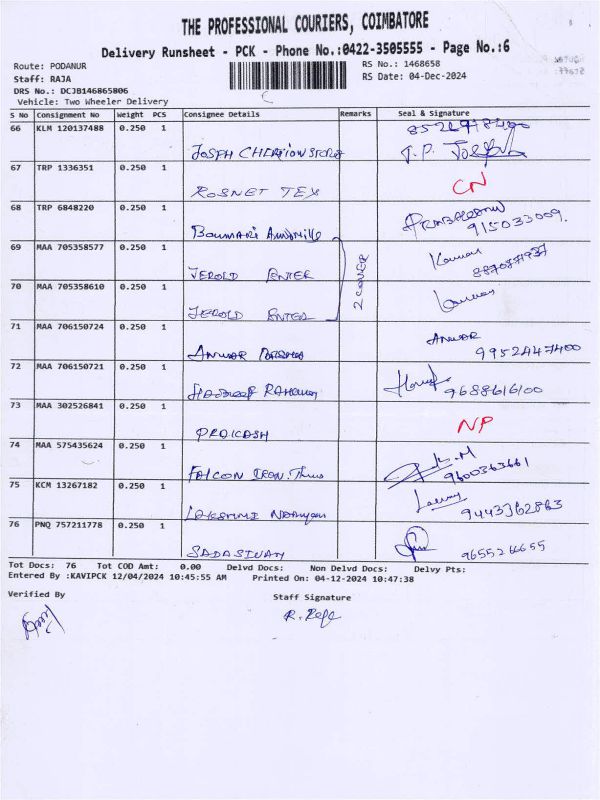 THE PROFESSIONAL COURIERS, COIMBATORE
Delivery Runsheet - PCK - Phone No.:0422-3505555 - Page No.:6
Route: PODANUR RS No.: 1468658
Staff: RAJA RS Date: 04-Dec-2024
DRS No.: DCJB146865806
Vehicle: Two Wheeler Delivery
S No Consignment No Weight PCS Consignee Details Remarks Seal & Signature
66 KLM 120137488 0.250 1
JOSEPH
67 TRP 1336351 0.250 1
ROSNET TEX CN
68 TRP 6848220 0.250 1
915033009.
69 MAA 705358577 0.250 1
JEROLD ENTER
2 COVER
70 MAA 705358610 0.250 1
JEROLD ENTER
71 MAA 706150724 0.250 1 ANWAR
ANWAR 9952447400
72 MAA 706150721 0.250 1
9688616100
73 MAA 302526841 0.250 1
PRAKASH NP
74 MAA 575435624 0.250 1
FALCON IRON 9600363661
75 KCM 13267182 0.250 1
LAKSHMI 9443362863
76 PNQ 757211778 0.250 1
SADASIVAM 9655266655
Tot Docs: 76 Tot COD Amt: 0.00 Delvd Docs: Non Delvd Docs: Delvy Pts:
Entered By :KAVIPCK 12/04/2024 10:45:55 AM Printed On: 04-12-2024 10:47:38
Verified By Staff Signature